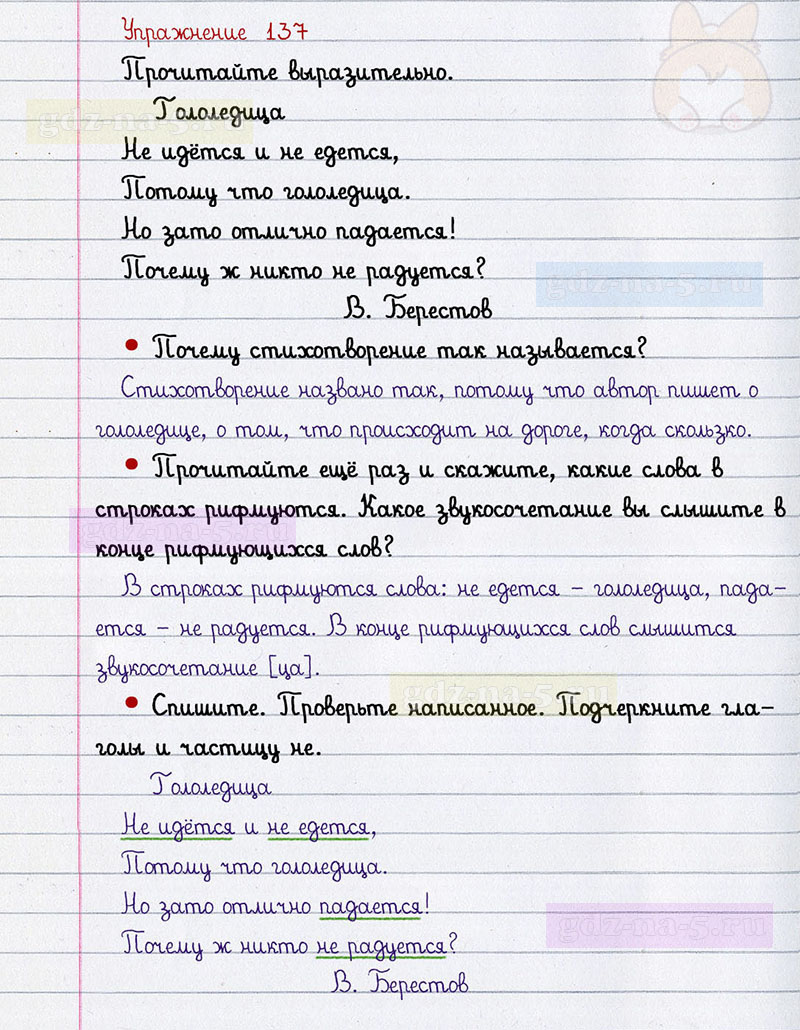 Упражнение 137
Прочитайте выразительно.
Гололедица
gdz-na-5.ru
Не идётся и не едется,
Потому что гололедица.
Но зато отлично падается!
Почему ж никто не радуется?
gdz-na-5.ru
В. Берестов
• Почему стихотворение так называется?
Стихотворение названо так, потому что автор пишет о
гололедице, о том, что происходит на дороге, когда скользко.
• Прочитайте ещё раз и скажите, какие слова в
строках рифмуются. Какое звукосочетание вы слышите в
gdz-na-5.ru
конце рифмующихся слов?
В строках рифмуются слова: не едется – гололедица, пада–
ется – не радуется. В конце рифмующихся слов слышится
звукосочетание [ца].
gdz-na-5.ru
• Спишите. Проверьте написанное. Подчеркните гла–
голы и частицу не.
Гололедица
Не идётся и не едется,
Потому что гололедица.
Но зато отлично падается!
gdz-na-5.ru
Почему ж никто не радуется?
В. Берестов